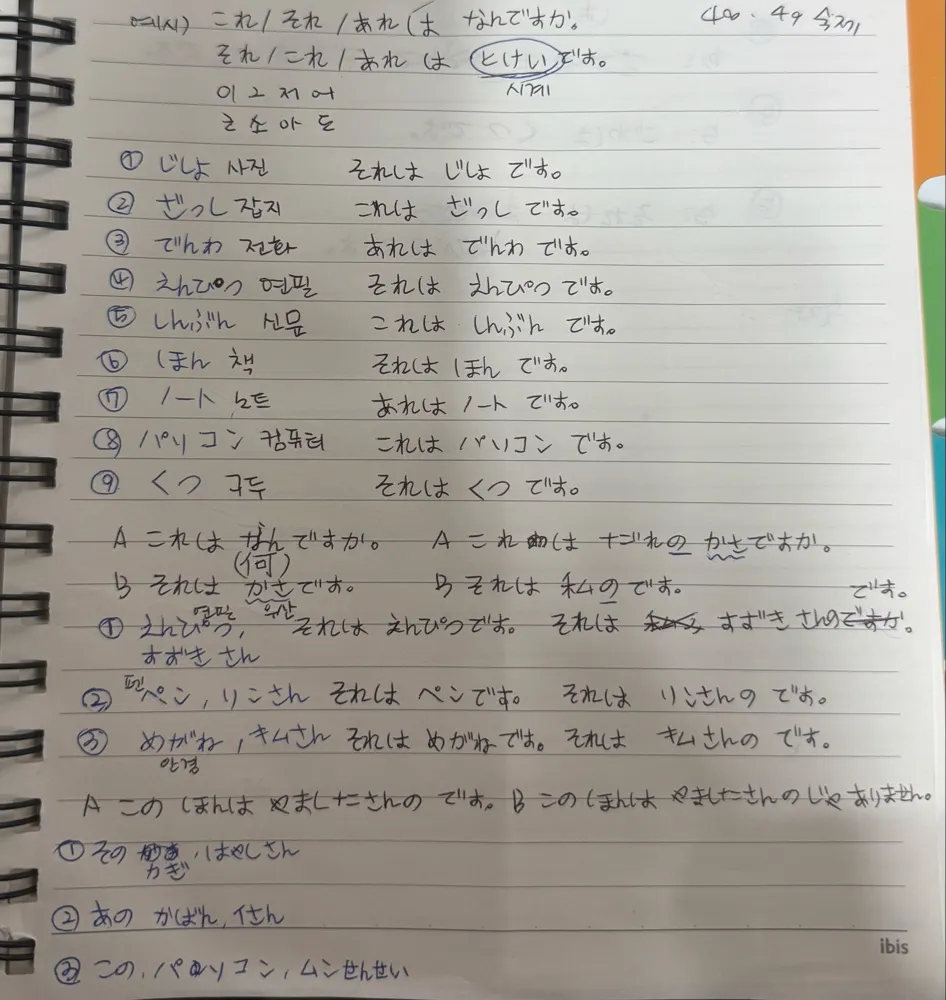 예시) これ/それ/あれは なんですか。 48. 49 숙제
それ/これ/あれ は とけいです。
이 그 저 어 시계
こ そ あ ど
① じしょ 사전 それは じしょ です。
② ざっし 잡지 これは ざっし です。
③ でんわ 전화 あれは でんわ です。
④ えんぴつ 연필 それは えんぴつ です。
⑤ しんぶん 신문 これは しんぶん です。
⑥ ほん 책 それは ほん です。
⑦ ノート 노트 あれは ノート です。
⑧ パソコン 컴퓨터 これは パソコン です。
⑨ くつ 구두 それは くつ です。
A これは なんですか。 A これは だれの かさですか。
(何)
B それは かさです。 B それは 私のです。 です。
연필 우산
① えんぴつ, それは えんぴつです。 それは すずき さんのですか。
すずき さん
② 펜 ペン, リンさん それは ペンです。 それは リンさんの です。
③ めがね, キムさん それは めがねです。 それは キムさんの です。
안경
A この ほんは やましたさんの です。 B この ほんは やましたさんの じゃ ありません。
① その , はやしさん
かぎ
② あの かばん, イさん
③ この, パソコン, ムンせんせい
ibis